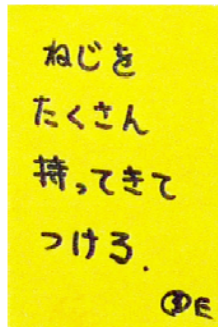 ねじを
たくさん
持ってきて
つけろ.
E